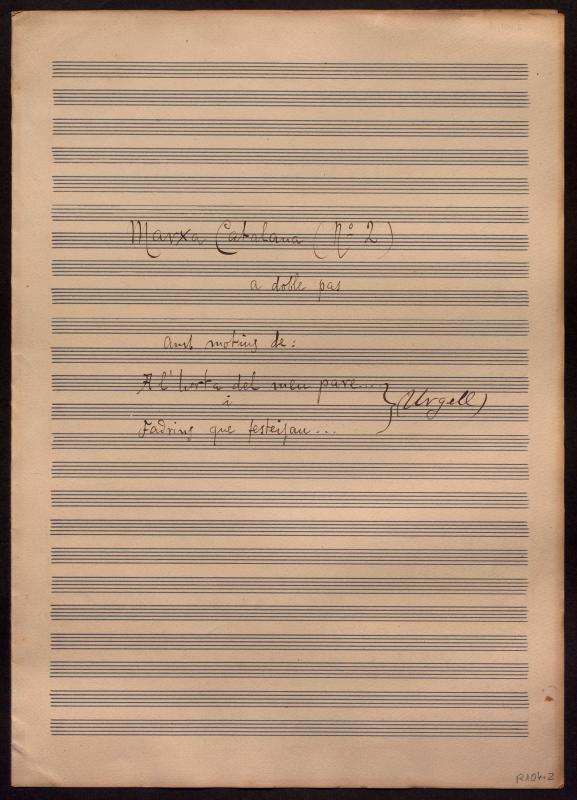 Marxa Catalana (Nº 2)
a doble pas
amb motius de:
A l'horta del meu pare....
i
Fadrins que festeijau...
(Urgell)
R104.2